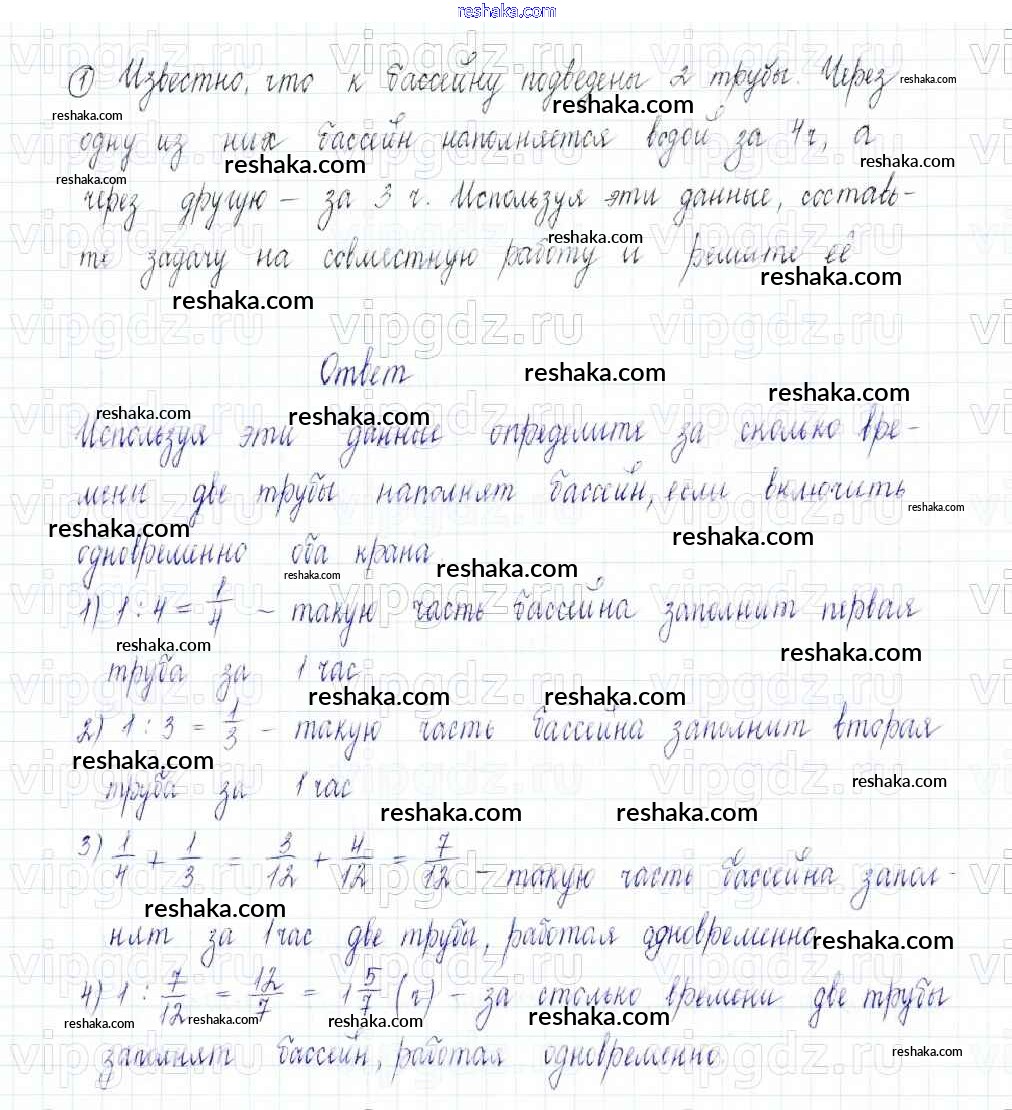 reshaka.com
① Известно, что к бассейну подведены 2 трубы. Через
одну из них бассейн наполняется водой за 4ч, а
через другую – за 3 ч. Используя эти данные, составь-
те задачу на совместную работу и решите её
Ответ
Используя эти данные определите за сколько вре-
мены две трубы наполнят бассейн, если включить
одновременно оба крана
1) 1 : 4 = 1/4 – такую часть бассейна заполнит первая
труба за 1 час
2) 1 : 3 = 1/3 – такую часть бассейна заполнит вторая
труба за 1 час
3) 1/4 + 1/3 = 3/12 + 4/12 = 7/12 – такую часть бассейна запол-
нят за 1 час две трубы, работая одновременно
4) 1 : 7/12 = 12/7 = 1 5/7 (ч) – за столько времени две трубы
заполнят бассейн, работая одновременно